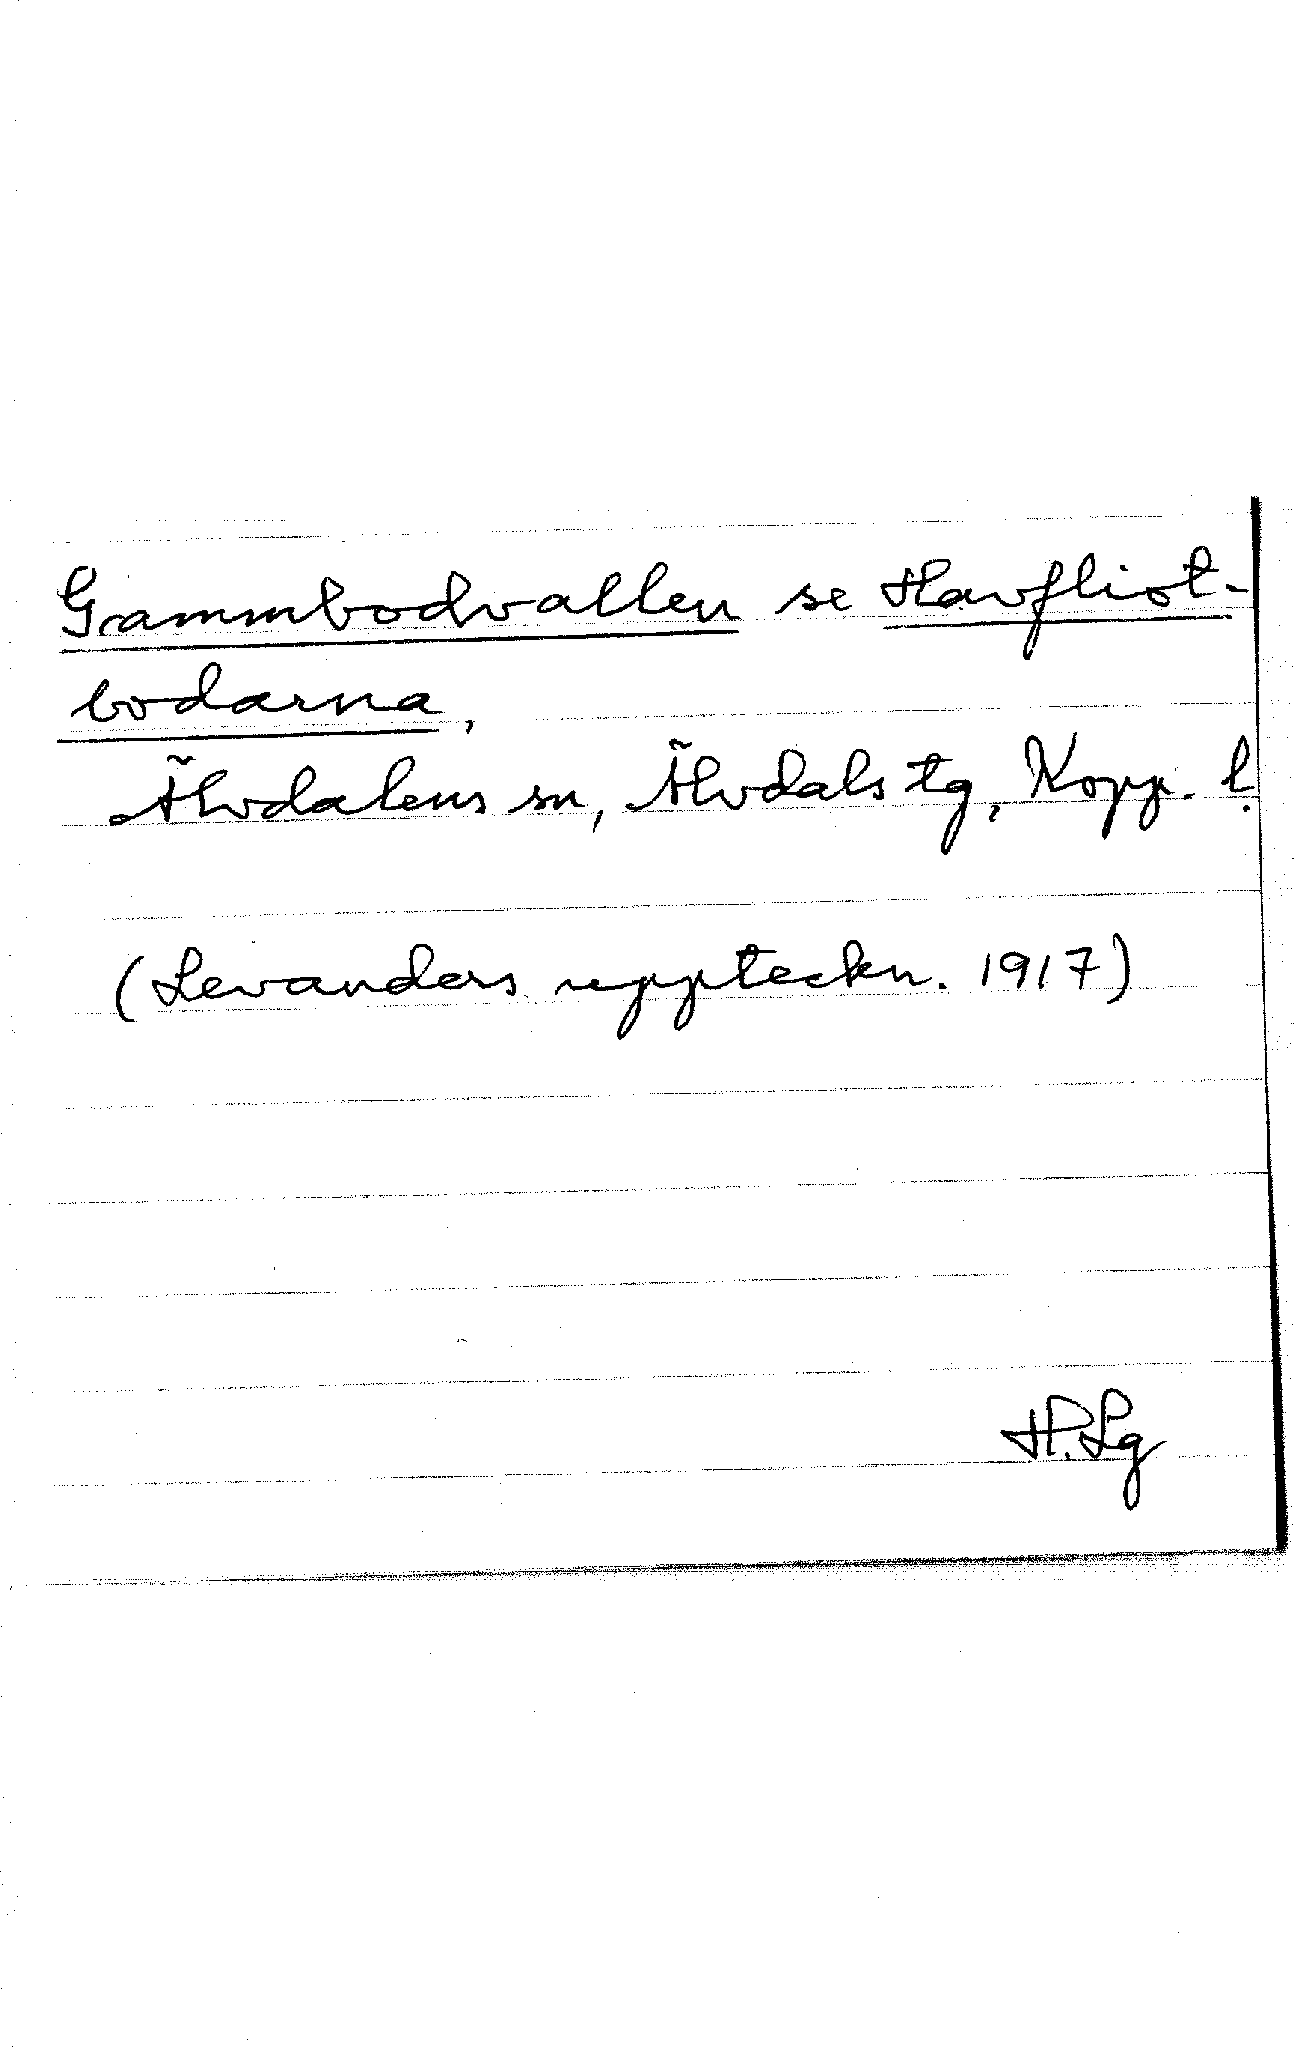 Gammbodvallen se Havfliot-
bodarna,
Älvdalens sn, Älvdals tg, Kopp. l.
(Levanders uppteckn. 1917)
H. Lg